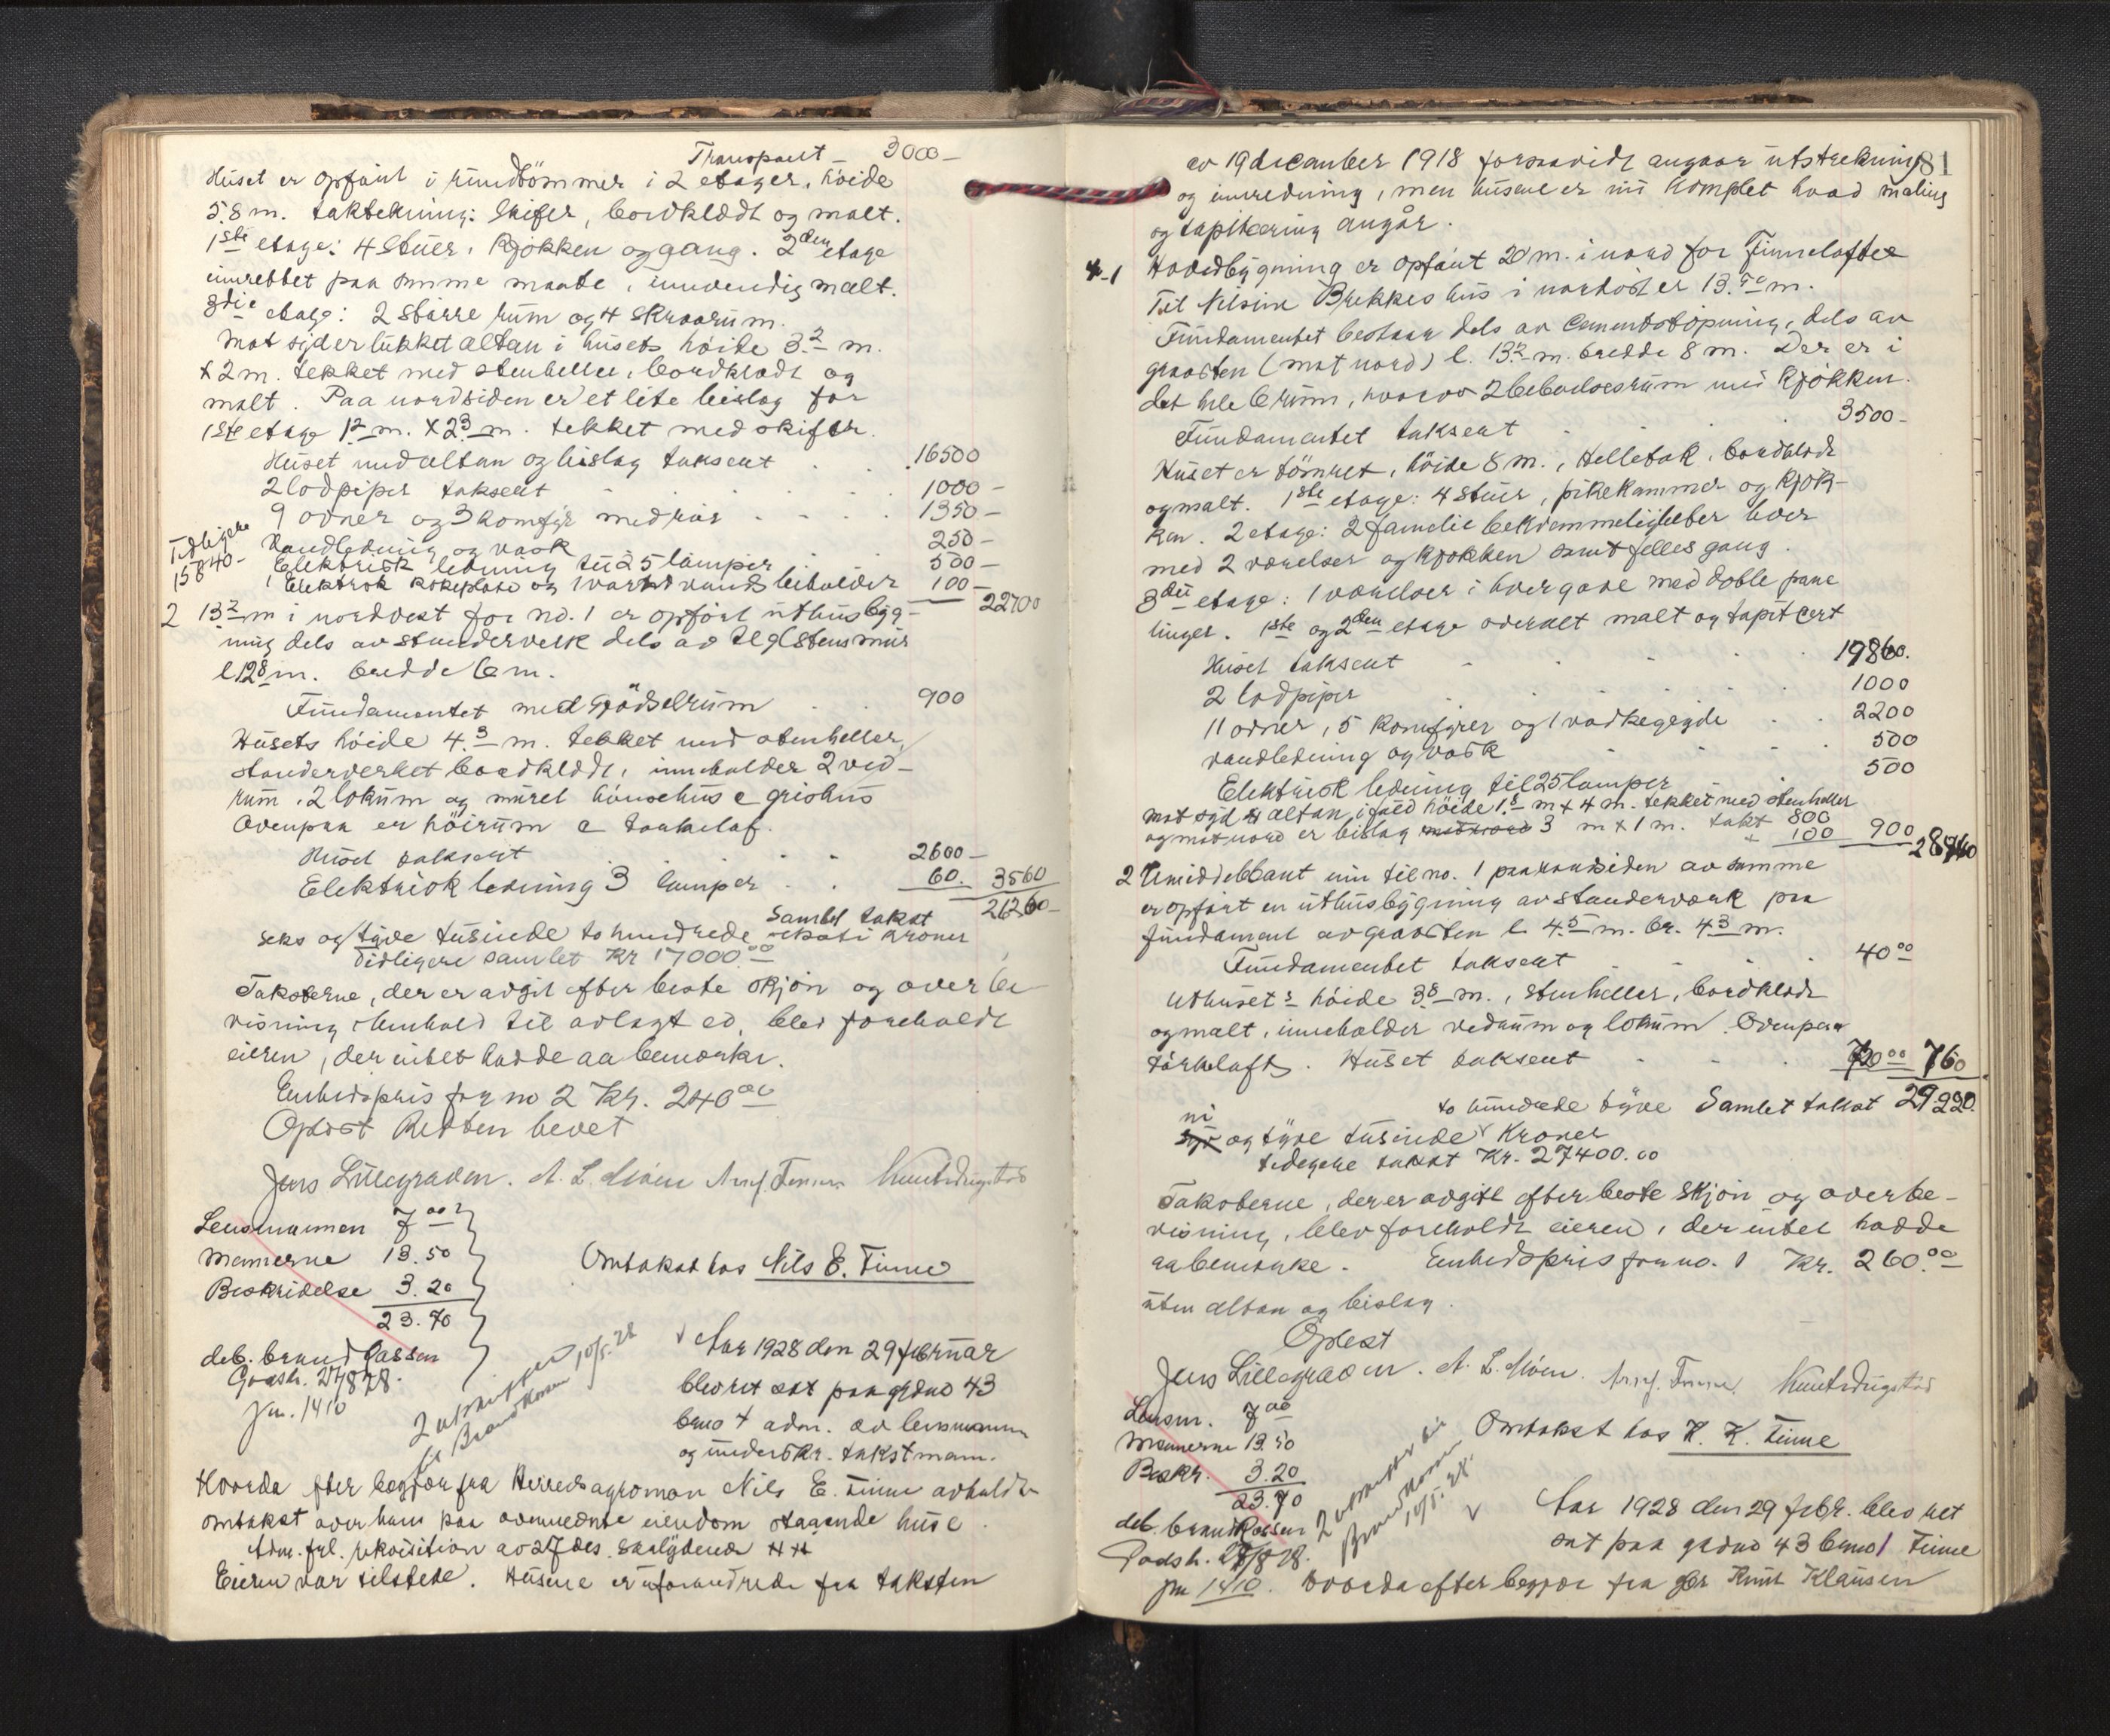 Transport - 3000 -
Huset er opført i rundtømmer i 2 etager, høide
5.8 m. taktekning: Skifer, bordklædt og malt.
1ste etage: 4 Stuer, Kjøkken og gang. 2den etage
innrettet paa samme maate, innvendig malt.
3die etage: 2 større rum og 4 skraarum.
Mot syd er lukket altan i husets høide 3.2 m.
x 2 m. tekket med stenheller, bordklædt og
malt. Paa nordsiden er et lite bislag for
1ste etage 1.2 m. x 2.3 m. tekket med skifer.
Huset med altan og bislag taksert . . 16500
2 lodpiper taksert - - - 1000 -
9 ovner og 3 komfyr med rør - - - 1350 -
Tidligere 15840 -
Vandledning og vask 250 -
Elektrisk ledning til 25 lamper 500 -
1 Elektrisk kokeplate og 1 varmtvandsbeholder 100 - 22700
2 13.2 m i nordvest for no. 1 er opført uthusbyg-
ning dels av stenderverk dels av teglstensmur
l 12.8 m. bredde 6 m.
Fundamentet med Gjødselrum . . 900
Husets høide 4.3 m. tekket med stenheller,
stenderverket bordklædt, inneholder 2 ved-
rum, 2 lokum og muret hønsehus & grishus
Ovenpaa er høirum & torkeloft.
Huset taksert - - 2600 -
Elektrisk ledning 3 lamper . . 60. 3560
Samlet takst 26260 -
seks og tyve tusinde to hundrede seksti Kroner
Tidligere samlet Kr 17000.00
Taksterne, der er avgit efter beste skjøn og overbe-
visning i henhold til avlagt ed, blev foreholdt
eieren, der intet hadde aa bemerke.
Enhedspris for no 2 Kr. 240.00
Oplæst Retten hevet
Jens Lillegraven. A. L. Moen Arnf. Finne Knut Dugstad
Lensmannen 7.00
Mannerne 13.50
Beskrivelse 3.20
23.70
deb. brandkassen
Godsk. 27/8 28.
jnr. 1410
2 utskrifter til Brandkassen 10/5.28
Omtakst hos Nils E. Finne
Aar 1928 den 29 februar
blev ret sat paa gr.no 43
bno 4 adm. av lensmannen
og underskr. takstmænn.
Hvorda efter begjær fra Herredsagronom Nils E. Finne avholdtes
omtakst over hans paa ovennevnte eiendom staaende huse.
Adm. frl. rekvisition av 27 des. saalydende ## 
Eieren var tilstede. Husene er uforandrede fra taksten
81
av 19 december 1918 forsaavidt angaar utstrekning
og innredning, men husene er nu komplet hvad maling
og tapitsering angår.
4-1 Hovedbygning er opført 20 m. i nord for Finneloftet
Til Nilsine Brekkes hus i nordøst er 13.50 m.
Fundamentet bestaar dels av Cementstøpning, dels av
graasten (mot nord) l. 13.2 m. bredde 8 m. Der er i
det hele 6 rum, hvorav 2 beboelsesrum med Kjøkken.
Fundamentet taksert . . . 3500 -
Huset er tømret, høide 8 m., Helletak, bordklædt
og malt. 1ste etage: 4 stuer, pikekammer og kjøk-
ken. 2 etage: 2 familiebekvemmeligheter hver
med 2 værelser og kjøkken samt felles gang.
3die etage: 1 værelser i hver gave med doble pane
linger. 1ste og 2den etage overalt malt og tapitsert
Huset taksert - - - 19860.
2 lodpiper . . . 1000
11 ovner, 5 komfyrer og 1 vaskegryde . . 2200
Vandledning og vask - - - 500
Elektrisk ledning til 25 lamper - - 500
Mot syd er altan, i fuld høide 1.8 m x 4 m. tekket med stenheller 800
og mot nord er bislag 3 m x 1 m. takst 100 900 28460
2 Umiddelbart inn til no. 1 paa nordsiden av samme
er opført en uthusbygning av stenderværk paa
fundament av graasten l. 4.5 m. br. 4.3 m.
Fundamentet taksert - - - 40.00
Uthusets høide 3.8 m., stenheller, bordklædt
og malt, inneholder vedrum og lokum. Ovenpaa
tørkeloft. Huset taksert - - - 720.00 760
to hundrede tyve Samlet takst 29.220.
ni og tyve tusinde Kroner
tidligere takst Kr. 27400.00
Taksterne, der er avgit efter beste skjøn og overbe-
visning, blev foreholdt eieren, der intet hadde
aa bemerke. Enhedspris for no. 1 Kr. 260.00
uten altan og bislag.
Oplest
Jens Lillegraven. A. L. Moen. Arnf. Finne. Knut Dugstad
Lensm. 7.00
Mannerne 13.50
Beskr. 3.20
23.70
deb. brandkassen
Godsk. 27/8 28.
jnr 1410.
2 utskrifter til Brandkassen 10/5.28.
Omtakst hos K. K. Finne
Aar 1928 den 29 febr. blev ret
sat paa grdno 43 bno 1 Finne
Hvorda efter begjær fra gbr Knut Klausen